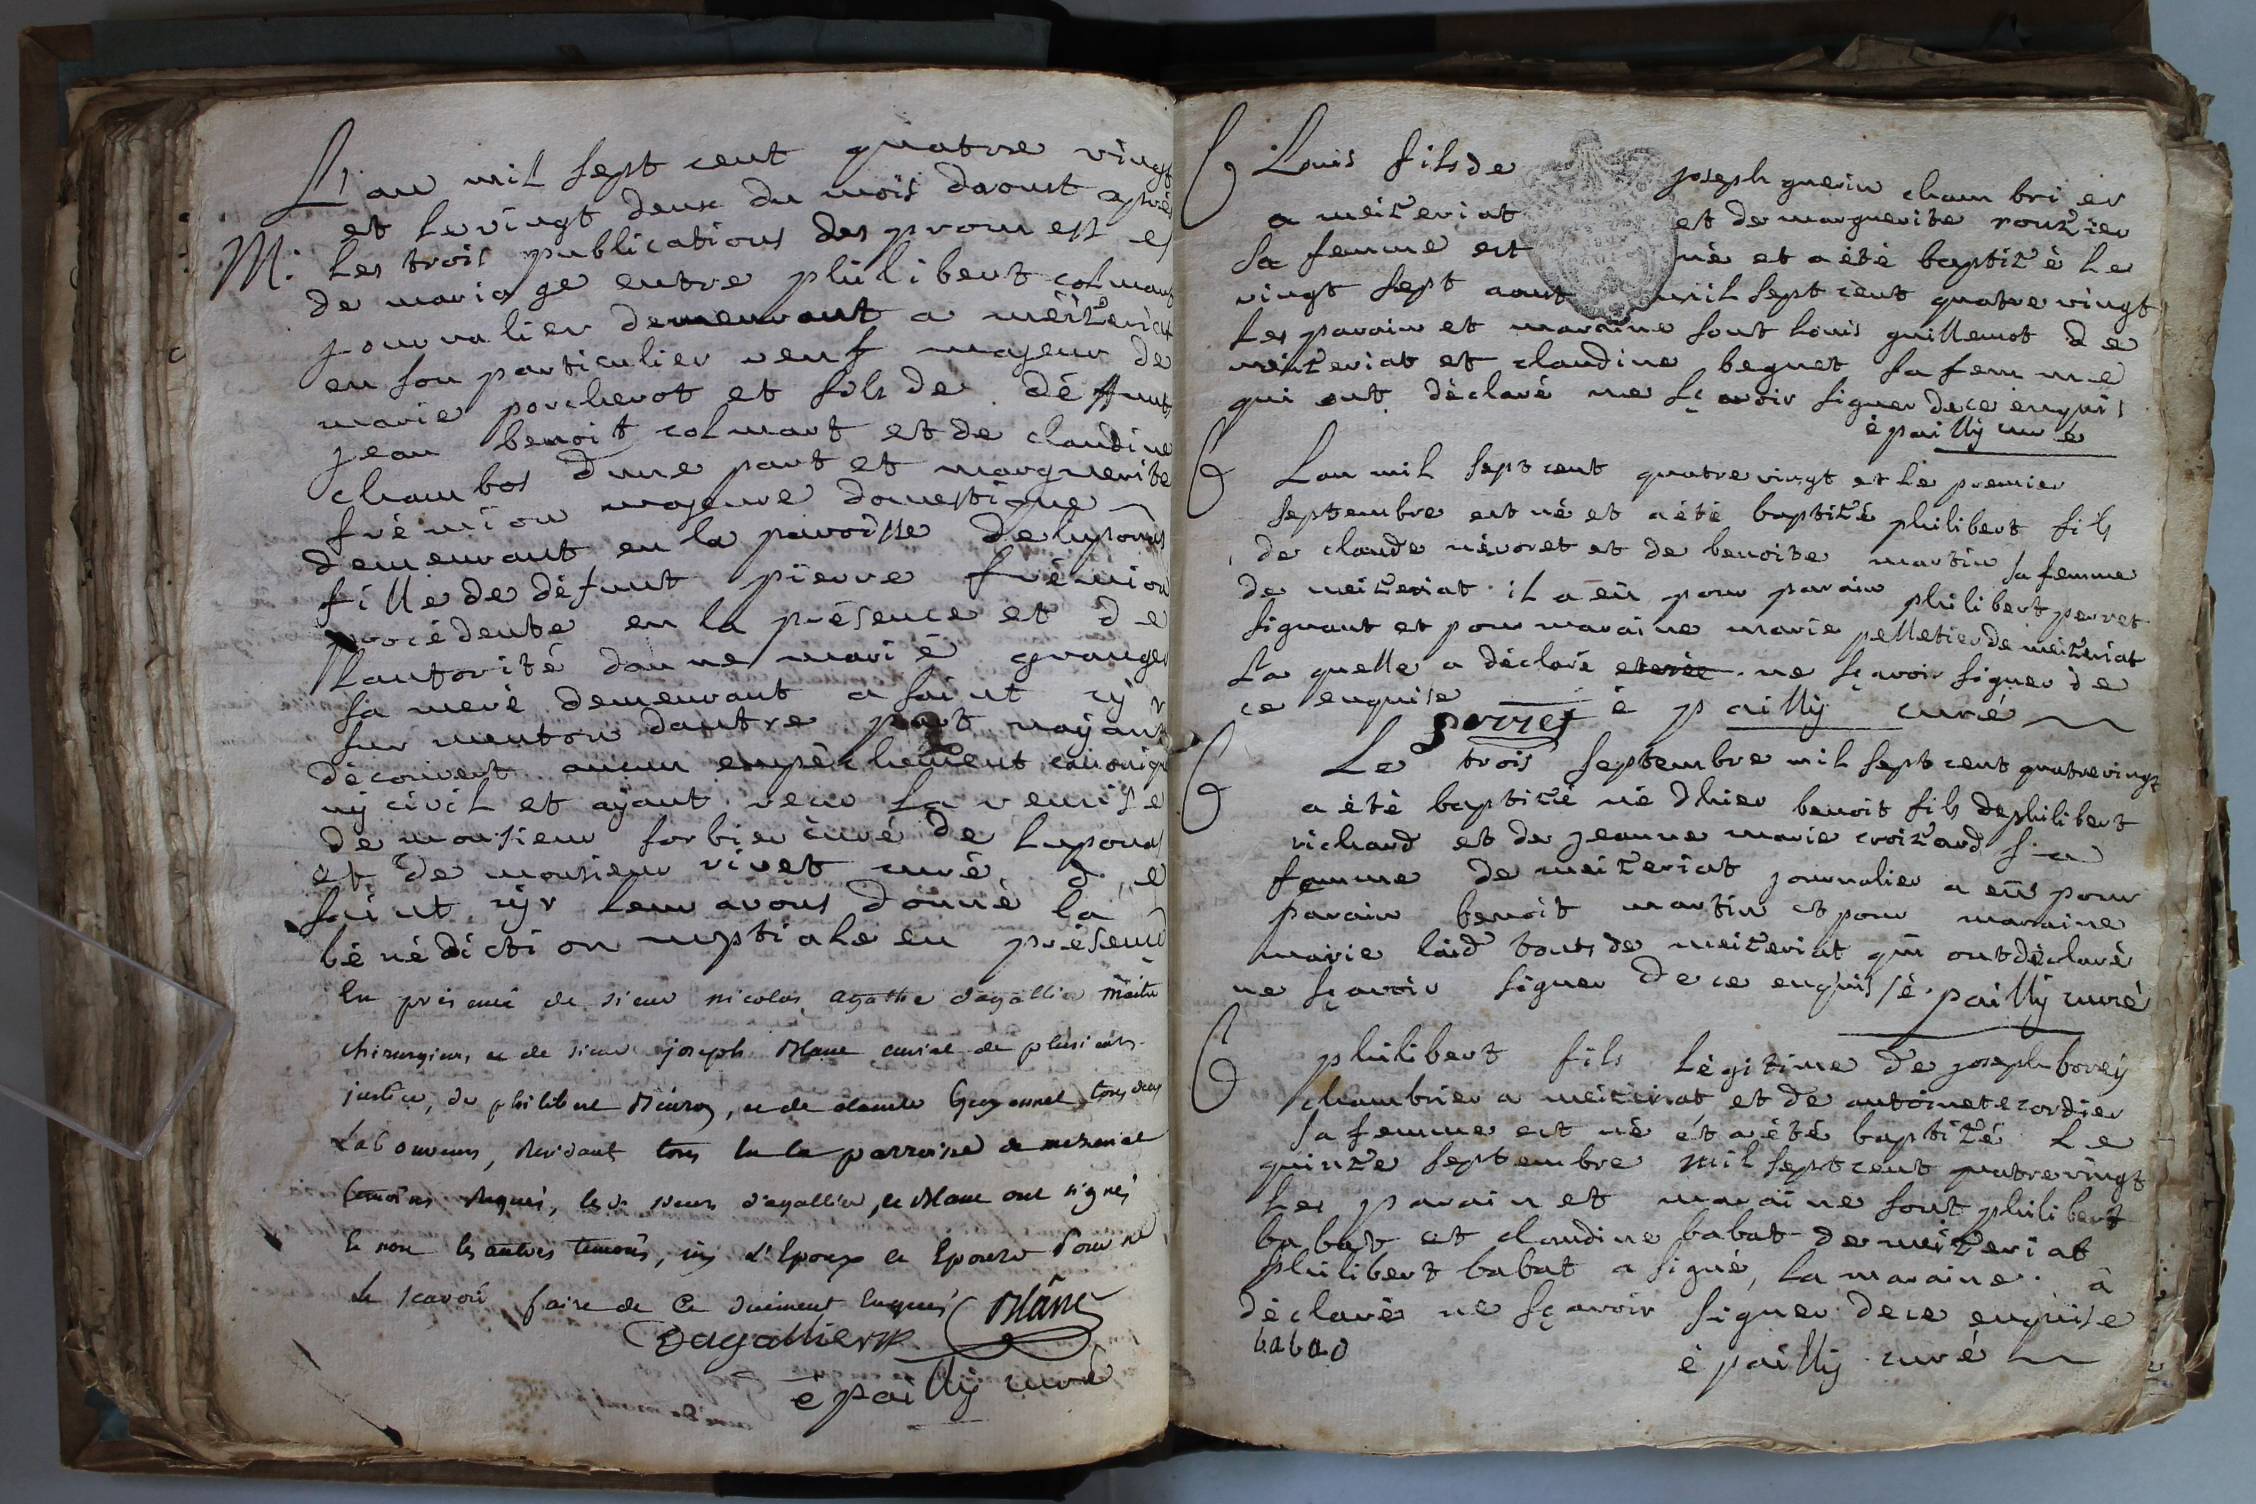 L'an mil sept cent quatre vingt
et le vingt deux du mois daoust aprés
M. les trois publications des promesses
de mariage entre philibert colmart
journalier demeurant a méïzériat
en son particulier veuf majeur de
marie porcherot et fils de deffunt
jean benoit colmart et de claudine
chambos d'une part et marguerite
frémion majeure domestique
demeurant en la paroisse de luponas
fille de défunt pierre frémion
procédente en la présence et de
lautorité danne marié granger
sa meré demeurant a saint cÿr
sur menton dautre part nayant
décomvert aucun empêchement canoniqu
nÿ civil et aÿant veu la remise
de monsieur forbier curé de luponas
et de monsieur vivet curé de
saint cÿr leur avons donné la
bénédiction nuptiale en présence
En présence de sieur nicolas agathe dagallier maitre
chirurgien, et de sieur joseph Blanc curial de plusieurs
justice, de philibert, et de claude Guyonnet tous deux
Laboureurs, Residant tous en la parroisse de mezeriat
temoins Requis, les d. sieurs d'agallier, et Blanc ont signés
et non les autres temoins, nÿ l'Epoux et Epouze pour ne
le scavoir faire de ce duement enquis Blanc
Dagallier
é pailly curé
B Louis fils de joseph guerin chambrier
a meizeriat et de marguerite rouzier
sa femme est né et a été baptizé le
vingt sept aout mil sept cent quatre vingt
les parain et maraine sont louis guillemot de
meizeriat et claudine beguet sa femme
qui ont déclaré ne sçavoir signer de ce enquis
é pailly curé
B Lan mil sept cent quatre vingt et le premier
septembre est né et a été baptizé philibert fils
de claude névoret et de benoite martin sa femme
de meizeriat. il a eü pour parain philibert perret
signant et pour maraine marie pelletier de meizeriat
la quelle a déclaré ne sçavoir signer de
ce enquise é pailly curé
perret
B Le trois septembre mil sept cent quatre vingt
a été baptizé né dhier benoit fils de philibert
richard et de jeanne marie croizard sa
femme de meizeriat journalier a eüs pour
parain benoit martin et pour maraine
marie laid touts de meizeriat qui ont déclaré
ne sçavoir signer de ce enquis / é pailly curé
B philibert fils légitime de joseph boreÿ
chambrier a meizeriat et de antoinete cordier
sa femme est né et a été baptizé le
quinze septembre mil sept cent quatre vingt
les parain et maraine sont philibert
babat et claudine babat de meizeriat
philibert babat a signé, la maraine a
déclaré ne sçavoir signer de ce enquise
babad é pailly curé